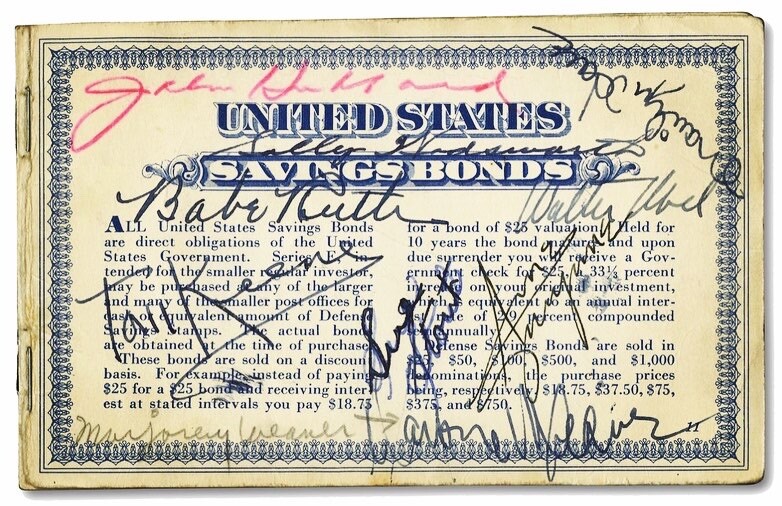 John Hubbard
UNITED STATES
SAVINGS BONDS
Babe Ruth
Walter Abel
ALL United States Savings Bonds
are direct obligations of the United
States Government. Series E, in-
tended for the smaller investor,
may be purchased any of the larger
and many of the smaller post offices for
cash equivalent amount of Defense
Savings Stamps. actual bonds
are obtained the time of purchase.
These bonds are sold on a discount
basis. For example, instead of paying
$25 for a $25 bond and receiving inter-
est at stated intervals you pay $18.75
for a bond of $25 valuation, held for
10 years the bond matures and upon
due surrender you receive a Gov-
ernment check for $25, 33⅓ percent
your original investment,
which is equivalent an annual inter-
est of 2.9 percent compounded
annually.
Defense Savings Bonds are sold in
$25, $50, $100, $500, and $1,000
denominations, the purchase prices
being, respectively, $18.75, $37.50, $75,
$375, and $750.
Tom Keene
June
Marjorey Weaver →
11